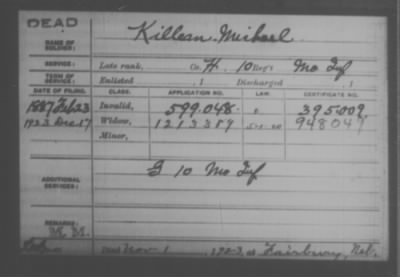 DEAD
NAME OF SOLDIER: Killean Michael
SERVICE: Late rank, Co. H. 10 Reg't Mo Inf
TERM OF SERVICE: Enlisted , 1 Discharged , 1
DATE OF FILING. CLASS. APPLICATION NO. LAW. CERTIFICATE NO.
1887 Feb 23 Invalid, 599.048. 395009
1923 Dec 17 Widow, 1213389 948047
Minor,
ADDITIONAL SERVICES: G 10 Mo Inf
REMARKS:
Died Nov 1 1923, at Fairbury, Neb.